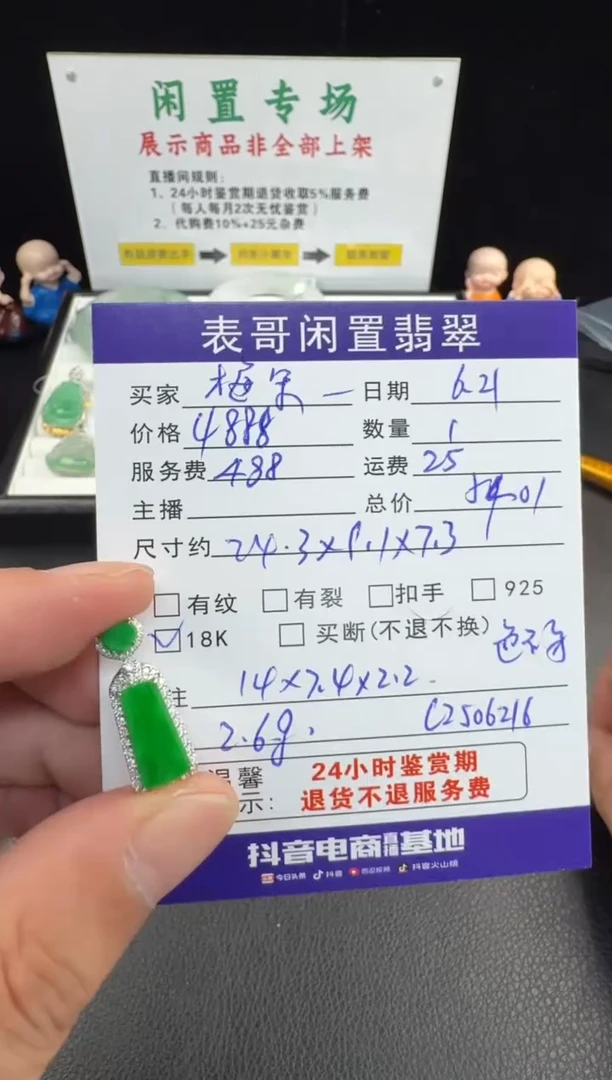 闲置专场
展示商品非全部上架
直播间规则：
1、24小时鉴赏期退货收取5%服务费
（每人每月2次无忧鉴赏）
2、代购费10%+25元杂费
表哥闲置翡翠
买家 梅 一 日期 6.21
价格 4888 数量 1
服务费 488 运费 25
主播 总价 5401
尺寸约 24.3×9.1×7.3
有纹 有裂 扣手 925
18K 买断(不退不换) 色不匀
注 14×7.4×2.2
2.6g. C2506216
温馨 24小时鉴赏期
示： 退货不退服务费
抖音电商直播基地
今日头条 抖音 西瓜视频 抖音火山版